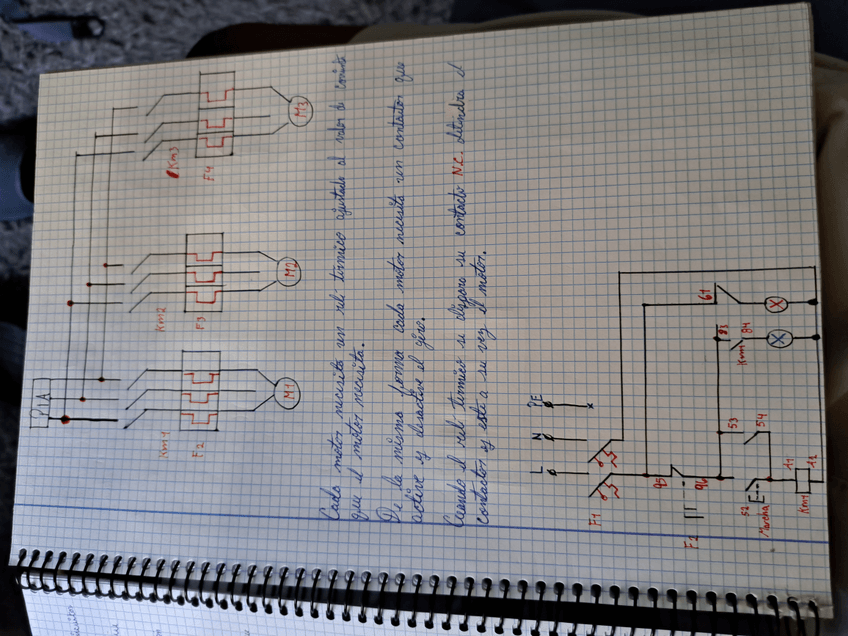 PIA
Km1
Km2
Km3
F2
F3
F4
M1
M2
M3
Cada motor necesita un relé térmico ajustado al valor de corriente
que el motor necesita.
De la misma forma cada motor necesita un contactor que
active y desactive el giro.
Cuando el relé térmico se dispara su contacto N.C. detendra el
contactor y este a su vez el motor.
L N PE
F1
F2
95
96
S2
Marcha
53
54
83
84
Km1
61
A1
Km1
A2
X
X